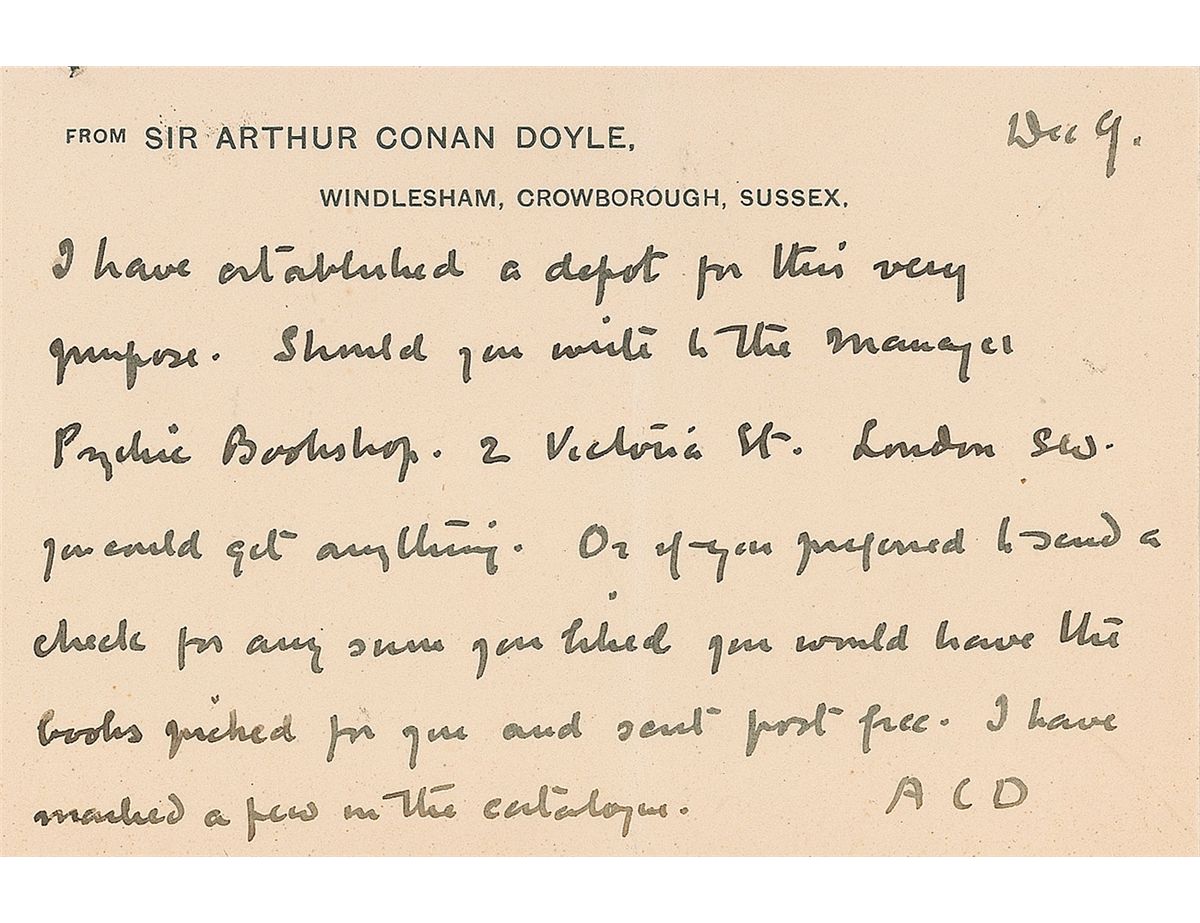 Dec 9.
FROM SIR ARTHUR CONAN DOYLE,
WINDLESHAM, CROWBOROUGH, SUSSEX.
I have established a depot for this very
purpose. Should you write to the Manager
Psychic Bookshop. 2 Victoria St. London SW.
you could get anything. Or if you preferred to send a
check for any sum you liked you would have the
books picked for you and sent post free. I have
marked a few in the catalogue. A C D